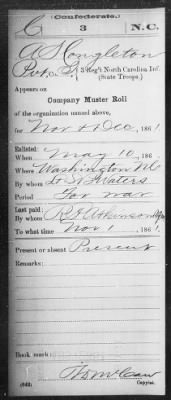 (Confederate.)
C 3 N.C.
A S Congleton
Pvt, Co. I, 3 Reg't North Carolina Inf.
(State Troops.)
Appears on
Company Muster Roll
of the organization named above,
for Nov & Dec, 1861.
Enlisted:
When May 10, 186 .
Where Washington NC
By whom Lt. Waters
Period For war
Last paid:
By whom R F Atkinson
To what time Nov 1, 1861.
Present or absent Present
Remarks:
Book mark:
(642) Copyist.